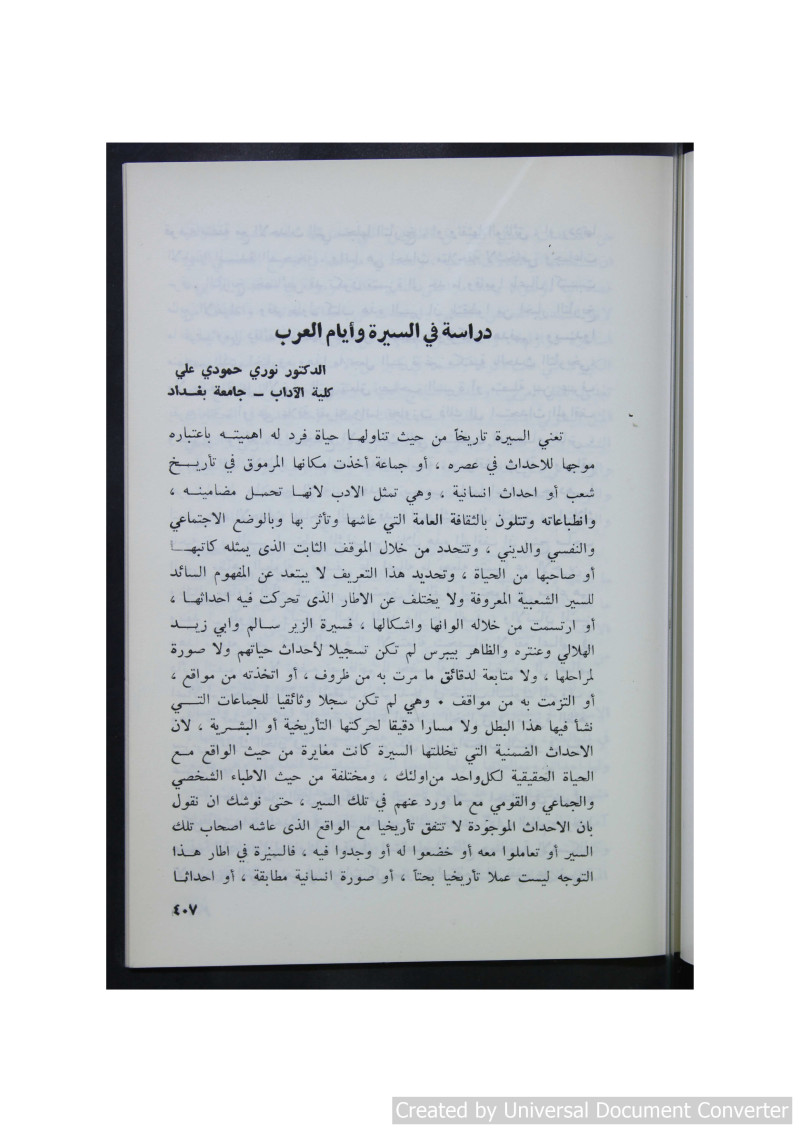 دراسة في السيرة وأيام العرب
الدكتور نوري حمودي علي
كلية الآداب – جامعة بغـداد
تعني السيرة تاريخاً من حيث تناولهـا حياة فرد له اهميتـه باعتباره
موجها للاحداث في عصره ، أو جماعة أخذت مكانها المرموق في تأريـخ
شعب أو احداث انسانية ، وهي تمثل الادب لانهـا تحمـل مضامينـه ،
وانطباعاته وتتلون بالثقافة العامة التي عاشها وتأثر بها وبالوضع الاجتماعي
والنفسي والديني ، وتتحدد من خلال الموقف الثابت الذى يمثله كاتبهـا
أو صاحبها من الحياة ، وتحديد هذا التعريف لا يبتعد عن المفهوم السائد
للسير الشعبية المعروفة ولا يختلف عن الاطار الذى تحركت فيه احداثهـا ،
أو ارتسمت من خلاله الوانها واشكالها ، فسيرة الزير سـالم وابي زيـد
الهلالي وعنتره والظاهر بيبرس لم تكن تسجيلا لأحداث حياتهم ولا صورة
لمراحلها ، ولا متابعة لدقائق ما مرت به من ظروف ، أو اتخذته من مواقع ،
أو التزمت به من مواقف ٠ وهي لم تكن سجلا وثائقيا للجماعات التـي
نشأ فيها هذا البطل ولا مسارا دقيقا لحركتها التأريخية أو البشـرية ، لان
الاحداث الضمنية التي تخللتها السيرة كانت مغايرة من حيث الواقع مـع
الحياة الحقيقية لكل واحد من اولئك ، ومختلفة من حيث الاطباء الشخصي
والجماعي والقومي مع ما ورد عنهم في تلك السير ، حتى نوشك ان نقول
بان الاحداث الموجودة لا تتفق تأريخيا مع الواقع الذى عاشه اصحاب تلك
السير أو تعاملوا معه أو خضعوا له أو وجدوا فيه ، فالسيرة في اطار هـذا
التوجه ليست عملا تأريخيا بحتاً ، أو صورة انسانية مطابقة ، أو احداثـا
٤٠٧
Created by Universal Document Converter